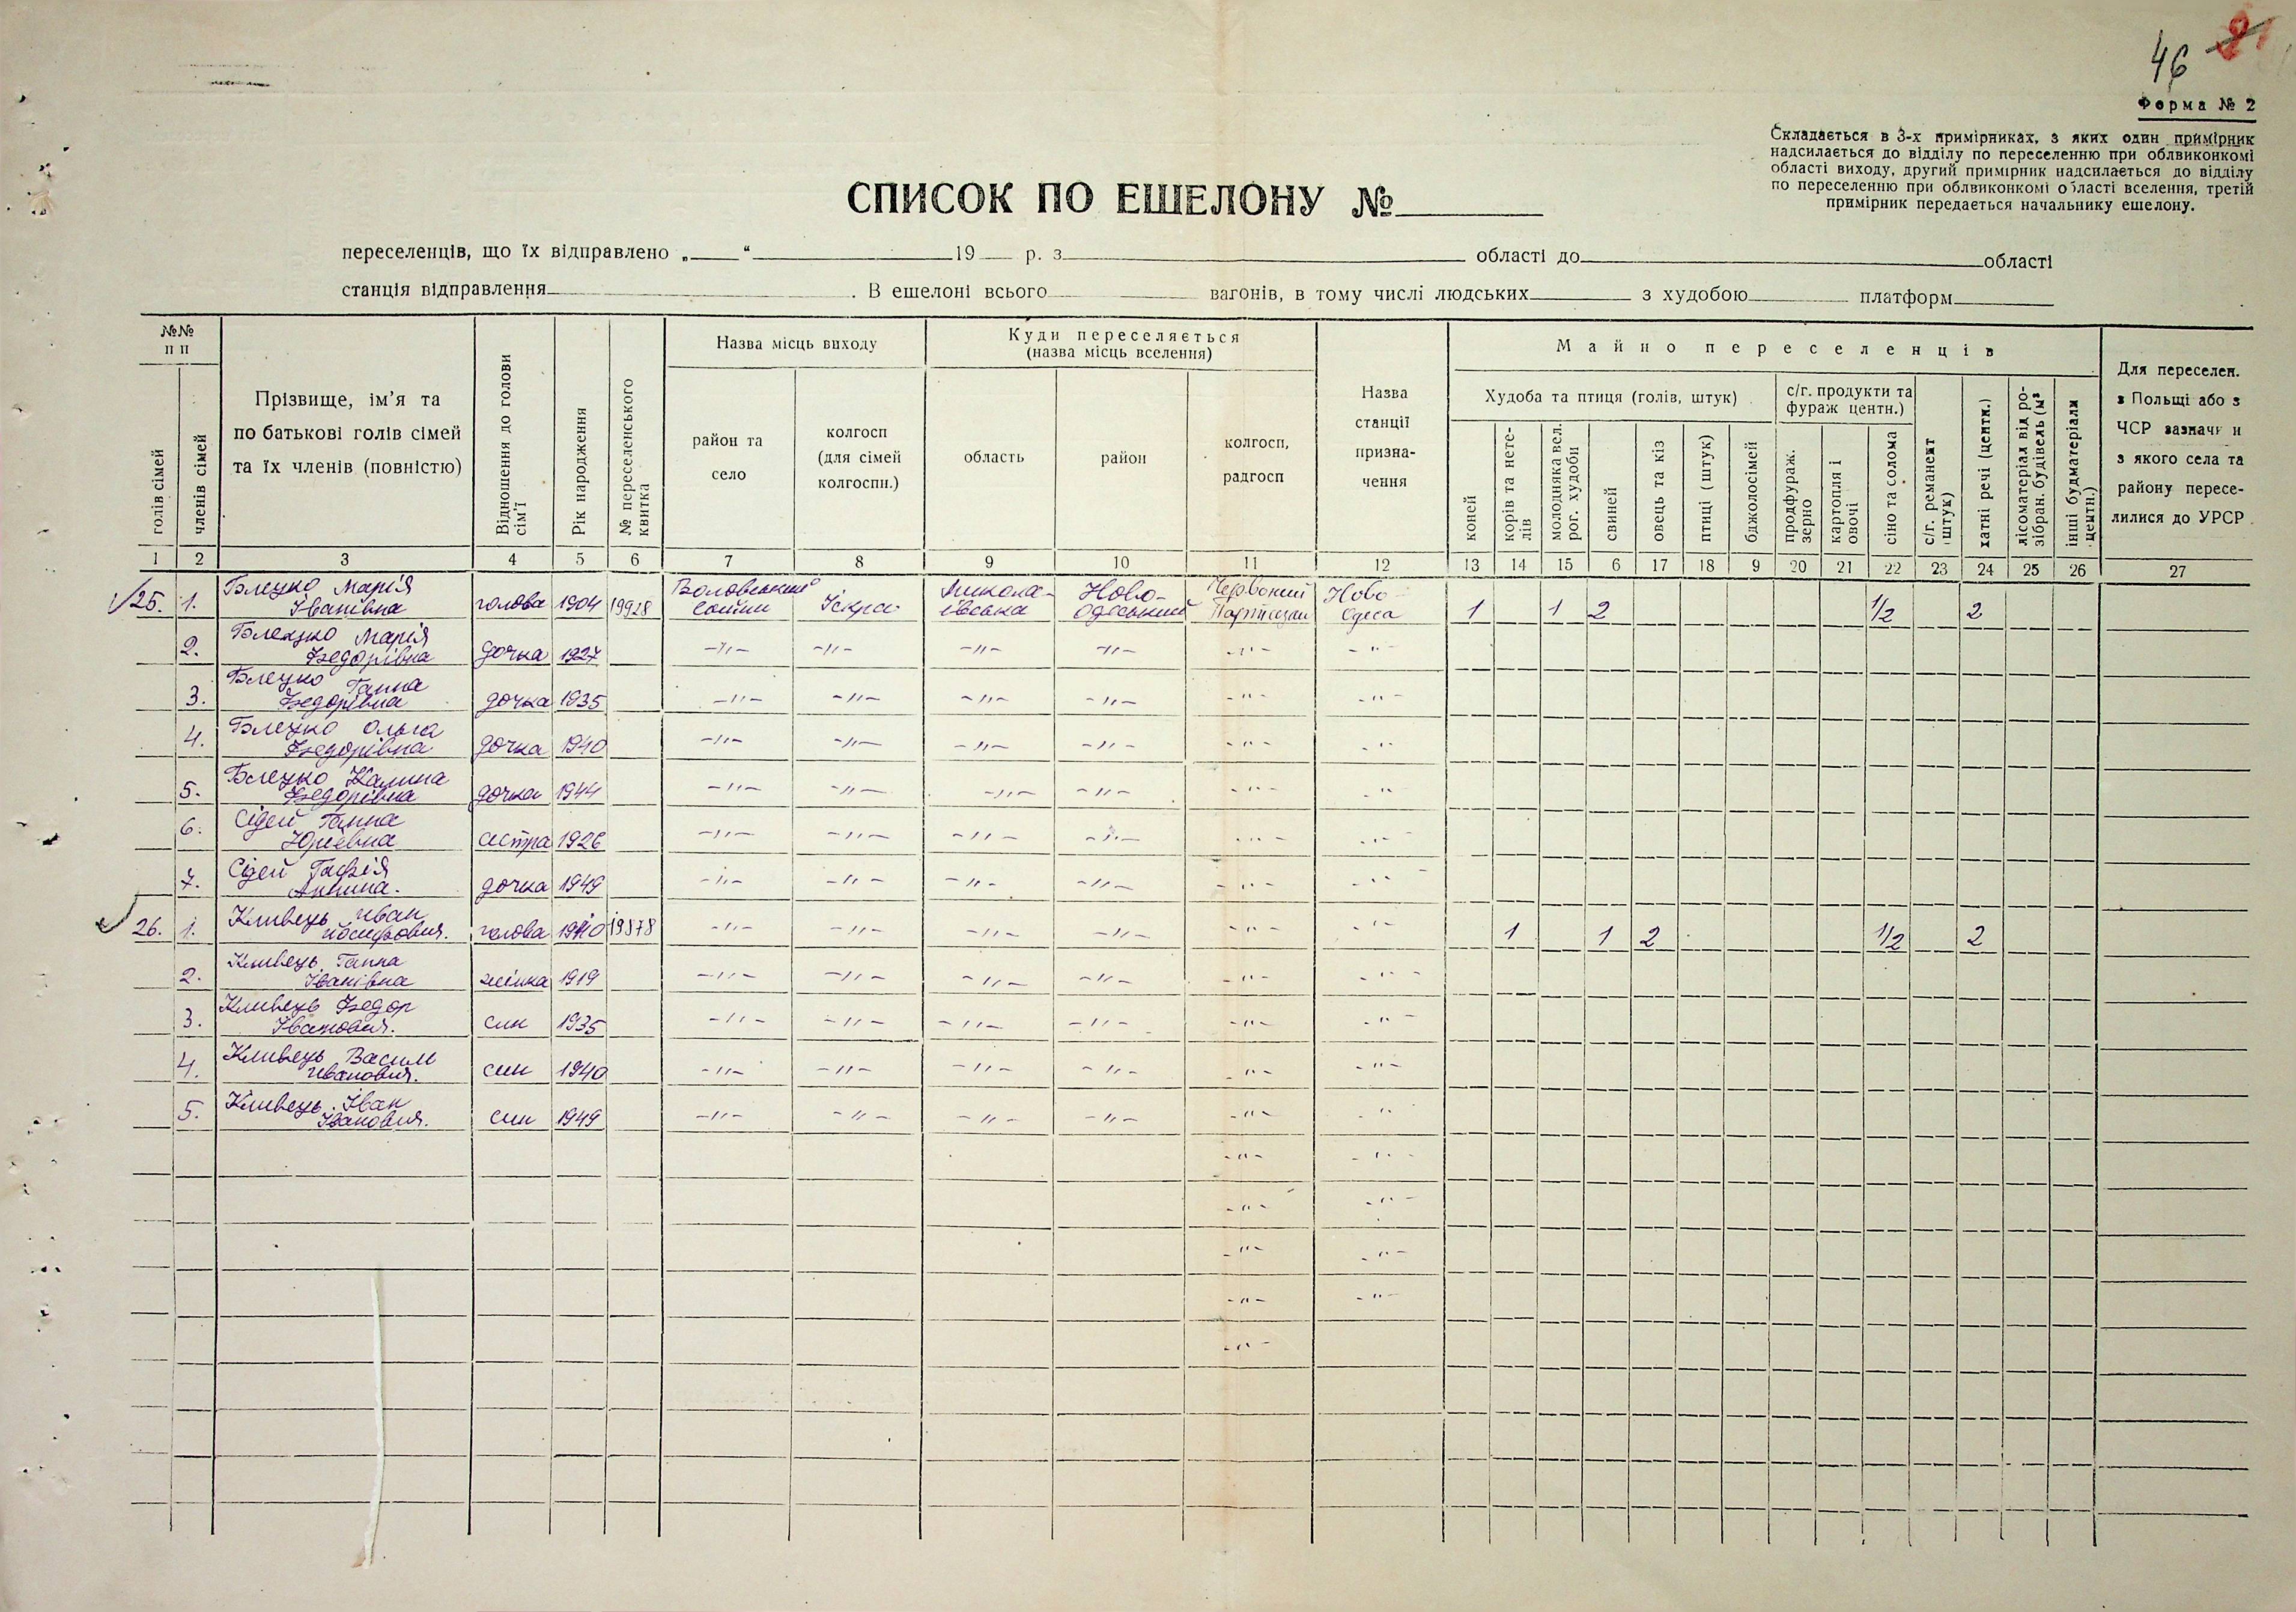 46 21
Форма № 2
Складається в 3-х примірниках, з яких один примірник
надсилається до відділу по переселенню при облвиконкомі
області виходу, другий примірник надсилається до відділу
по переселенню при облвиконкомі області вселення, третій
примірник передається начальнику ешелону.
СПИСОК ПО ЕШЕЛОНУ №
переселенців, що їх відправлено „ “ 19 р. з області до області
станція відправлення . В ешелоні всього вагонів, в тому числі людських з худобою платформ
№№ п п
голів сімей
членів сімей
Прізвище, ім’я та
по батькові голів сімей
та їх членів (повністю)
Відношення до голови сім’ї
Рік народження
№ переселенського квитка
Назва місць виходу
район та
село
колгосп
(для сімей
колгоспн.)
Куди переселяється
(назва місць вселення)
область
район
колгосп,
радгосп
Назва
станції
призна-
чення
Майно переселенців
Худоба та птиця (голів, штук)
коней
корів та нете-
лів
молодняка вел.
рог. худоби
свиней
овець та кіз
птиці (штук)
бджолосімей
с/г. продукти та
фураж центн.)
продфураж.
зерно
картопля і
овочі
сіно та солома
с/г. реманент
штук)
хатні речі (центн.)
лісоматеріал від ро-
зібран. будівель (м³
інші будматеріали
центн.)
Для переселен.
з Польщі або з
ЧСР зазначи и
з якого села та
району пересе-
лилися до УРСР
1 2 3 4 5 6 7 8 9 10 11 12 13 14 15 6 17 18 9 20 21 22 23 24 25 26 27
25. 1. Блецко Марія Іванівна голова 1904 19928 Воловський Іскра Миколаївська Ново-Одеський Червоний Партизан Ново Одеса 1 1 2 1/2 2
2. Блецко Марія Федорівна дочка 1927 -"- -"- -"- -"- -"- -"-
3. Блецко Ганна Федорівна дочка 1935 -"- -"- -"- -"- -"- -"-
4. Блецко Ольга Федорівна дочка 1940 -"- -"- -"- -"- -"- -"-
5. Блецко Калина Федорівна дочка 1944 -"- -"- -"- -"- -"- -"-
6. Сідей Ганна Юріевна сестра 1926 -"- -"- -"- -"- -"- -"-
7. Сідей Гафія дочка 1949 -"- -"- -"- -"- -"- -"-
26. 1. Кливець Иван Йосипович. голова 1910 19878 -"- -"- -"- -"- -"- -"- 1 1 2 1/2 2
2. Кливець Ганна Іванівна жінка 1919 -"- -"- -"- -"- -"- -"-
3. Кливець Федор Іванович. син 1935 -"- -"- -"- -"- -"- -"-
4. Кливець Васили Иванович. син 1940 -"- -"- -"- -"- -"- -"-
5. Кливець Іван Іванович. син 1949 -"- -"- -"- -"- -"- -"-
-"- -"-
-"- -"-
-"- -"-
-"- -"-
-"-